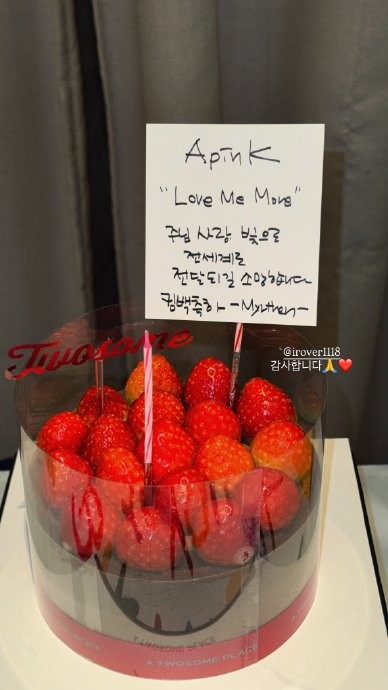 Apink
"Love Me More"
주님 사랑 빛으로
전세계로
전달되길 소망합니다
컴백축하
@irover1118
감사합니다🙏❤️
Twosome
A TWOSOME PLACE
A TWOSOME PLACE